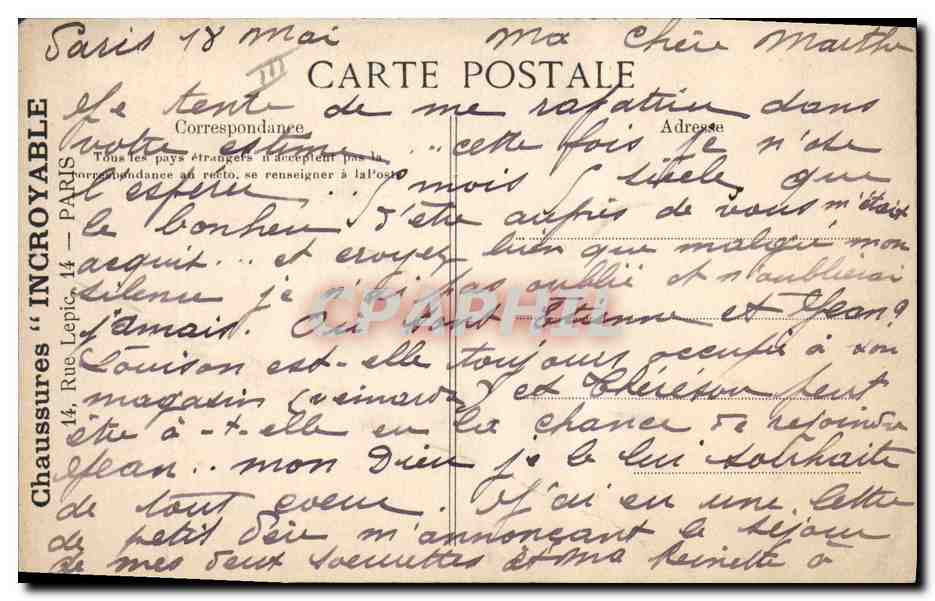 Paris 18 Mai Ma Chère Marthe
III
CARTE POSTALE
Je tente de me rapatrier dans
Correspondance Adresse
votre estime .. cette fois je n'ose
Tous les pays étrangers n'acceptent pas la
correspondance au recto, se renseigner à la Poste
l'espérer ... 5 mois 5 siècles que
le bonheur d'être auprès de vous m'était
acquit ... et croyez bien que malgré mon
silence je n'ai pas oublié et n'oublierai
jamais. Où sont Etienne et Jean?
Louison est-elle toujours occupée à son
magasin (veinarde) et Thérèson peut
être a-t-elle eu la chance de rejoindre
Jean .. mon Dieu je le lui souhaite
de tout coeur. J'ai eu une lettre
de petit m'annonçant le séjour
de mes deux soeurettes et ma Reinette à
Chaussures "INCROYABLE
14, Rue Lepic, 14 — PARIS
CPAPHIL